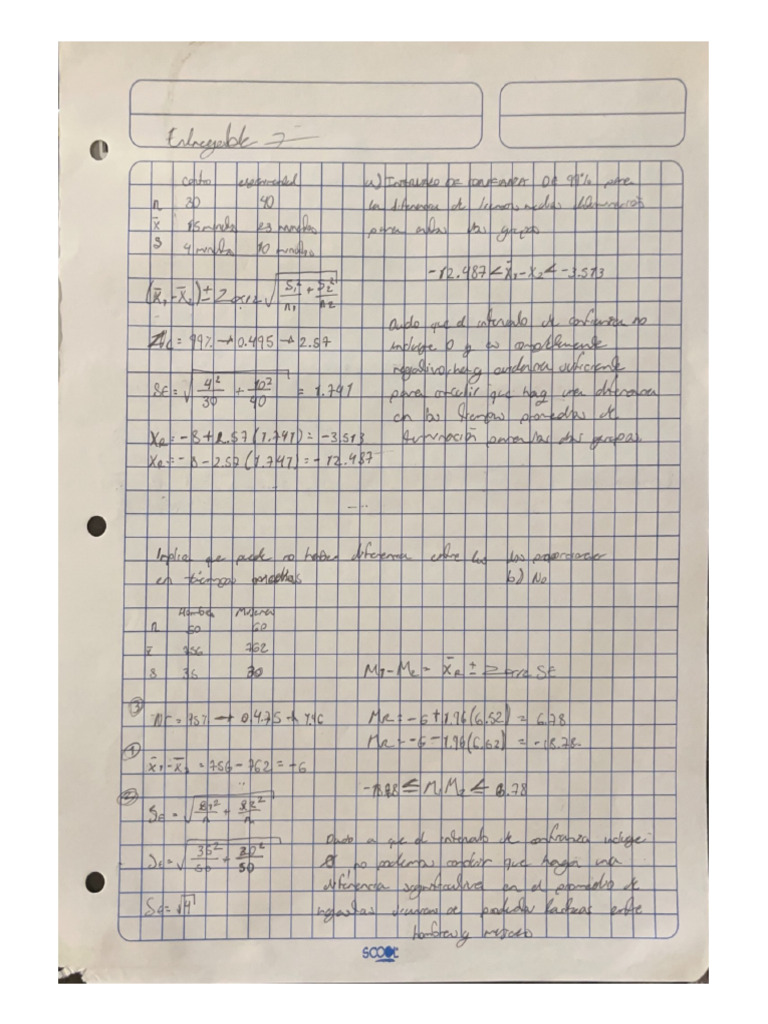 Entregable 7
control experimental
n 30 40
x̄ 15 minutos 23 minutos
S 4 minutos 10 minutos
(x̄₁-x̄₂) ± Z α/2 √(S₁²/n₁ + S₂²/n₂)
NC = 99% → 0.495 → 2.57
SE = √(4²/30 + 10²/40) = 1.741
XR = -8 + 2.57 (1.741) = -3.513
XR = -8 - 2.57 (1.741) = -12.487
a) INTERVALO DE CONFIANZA DE 99% para
la diferencia de
para ambos los grupos
-12.487 < x̄₁-x₂ < -3.513
Dado que el intervalo de confianza no
incluye 0 y es completamente
negativo, hay evidencia suficiente
para concluir que hay una diferencia
en los tiempos promedios de
para los dos grupos.
Implica que puede no haber diferencia entre las dos
en tiempos
b) No
Hombres Mujeres
n 50 50
x̄ 756 762
S 35 30
③
NC = 95% → 0.475 → 1.96
①
x̄₁-x̄₂ = 756 - 762 = -6
②
SE = √(S₁²/n + S₂²/n)
SE = √(35²/50 + 30²/50)
M₁-M₂ = x̄R ± Z SE
MR = -6 + 1.96 (6.52) = 6.78
MR = -6 - 1.96 (6.52) = -18.78
≤ M₁ M₂ ≤ 6.78
Dado a que el intervalo de confianza incluye
no podemos concluir que haya una
diferencia significativa en el promedio de
de entre
hombres y mujeres
SCOOL